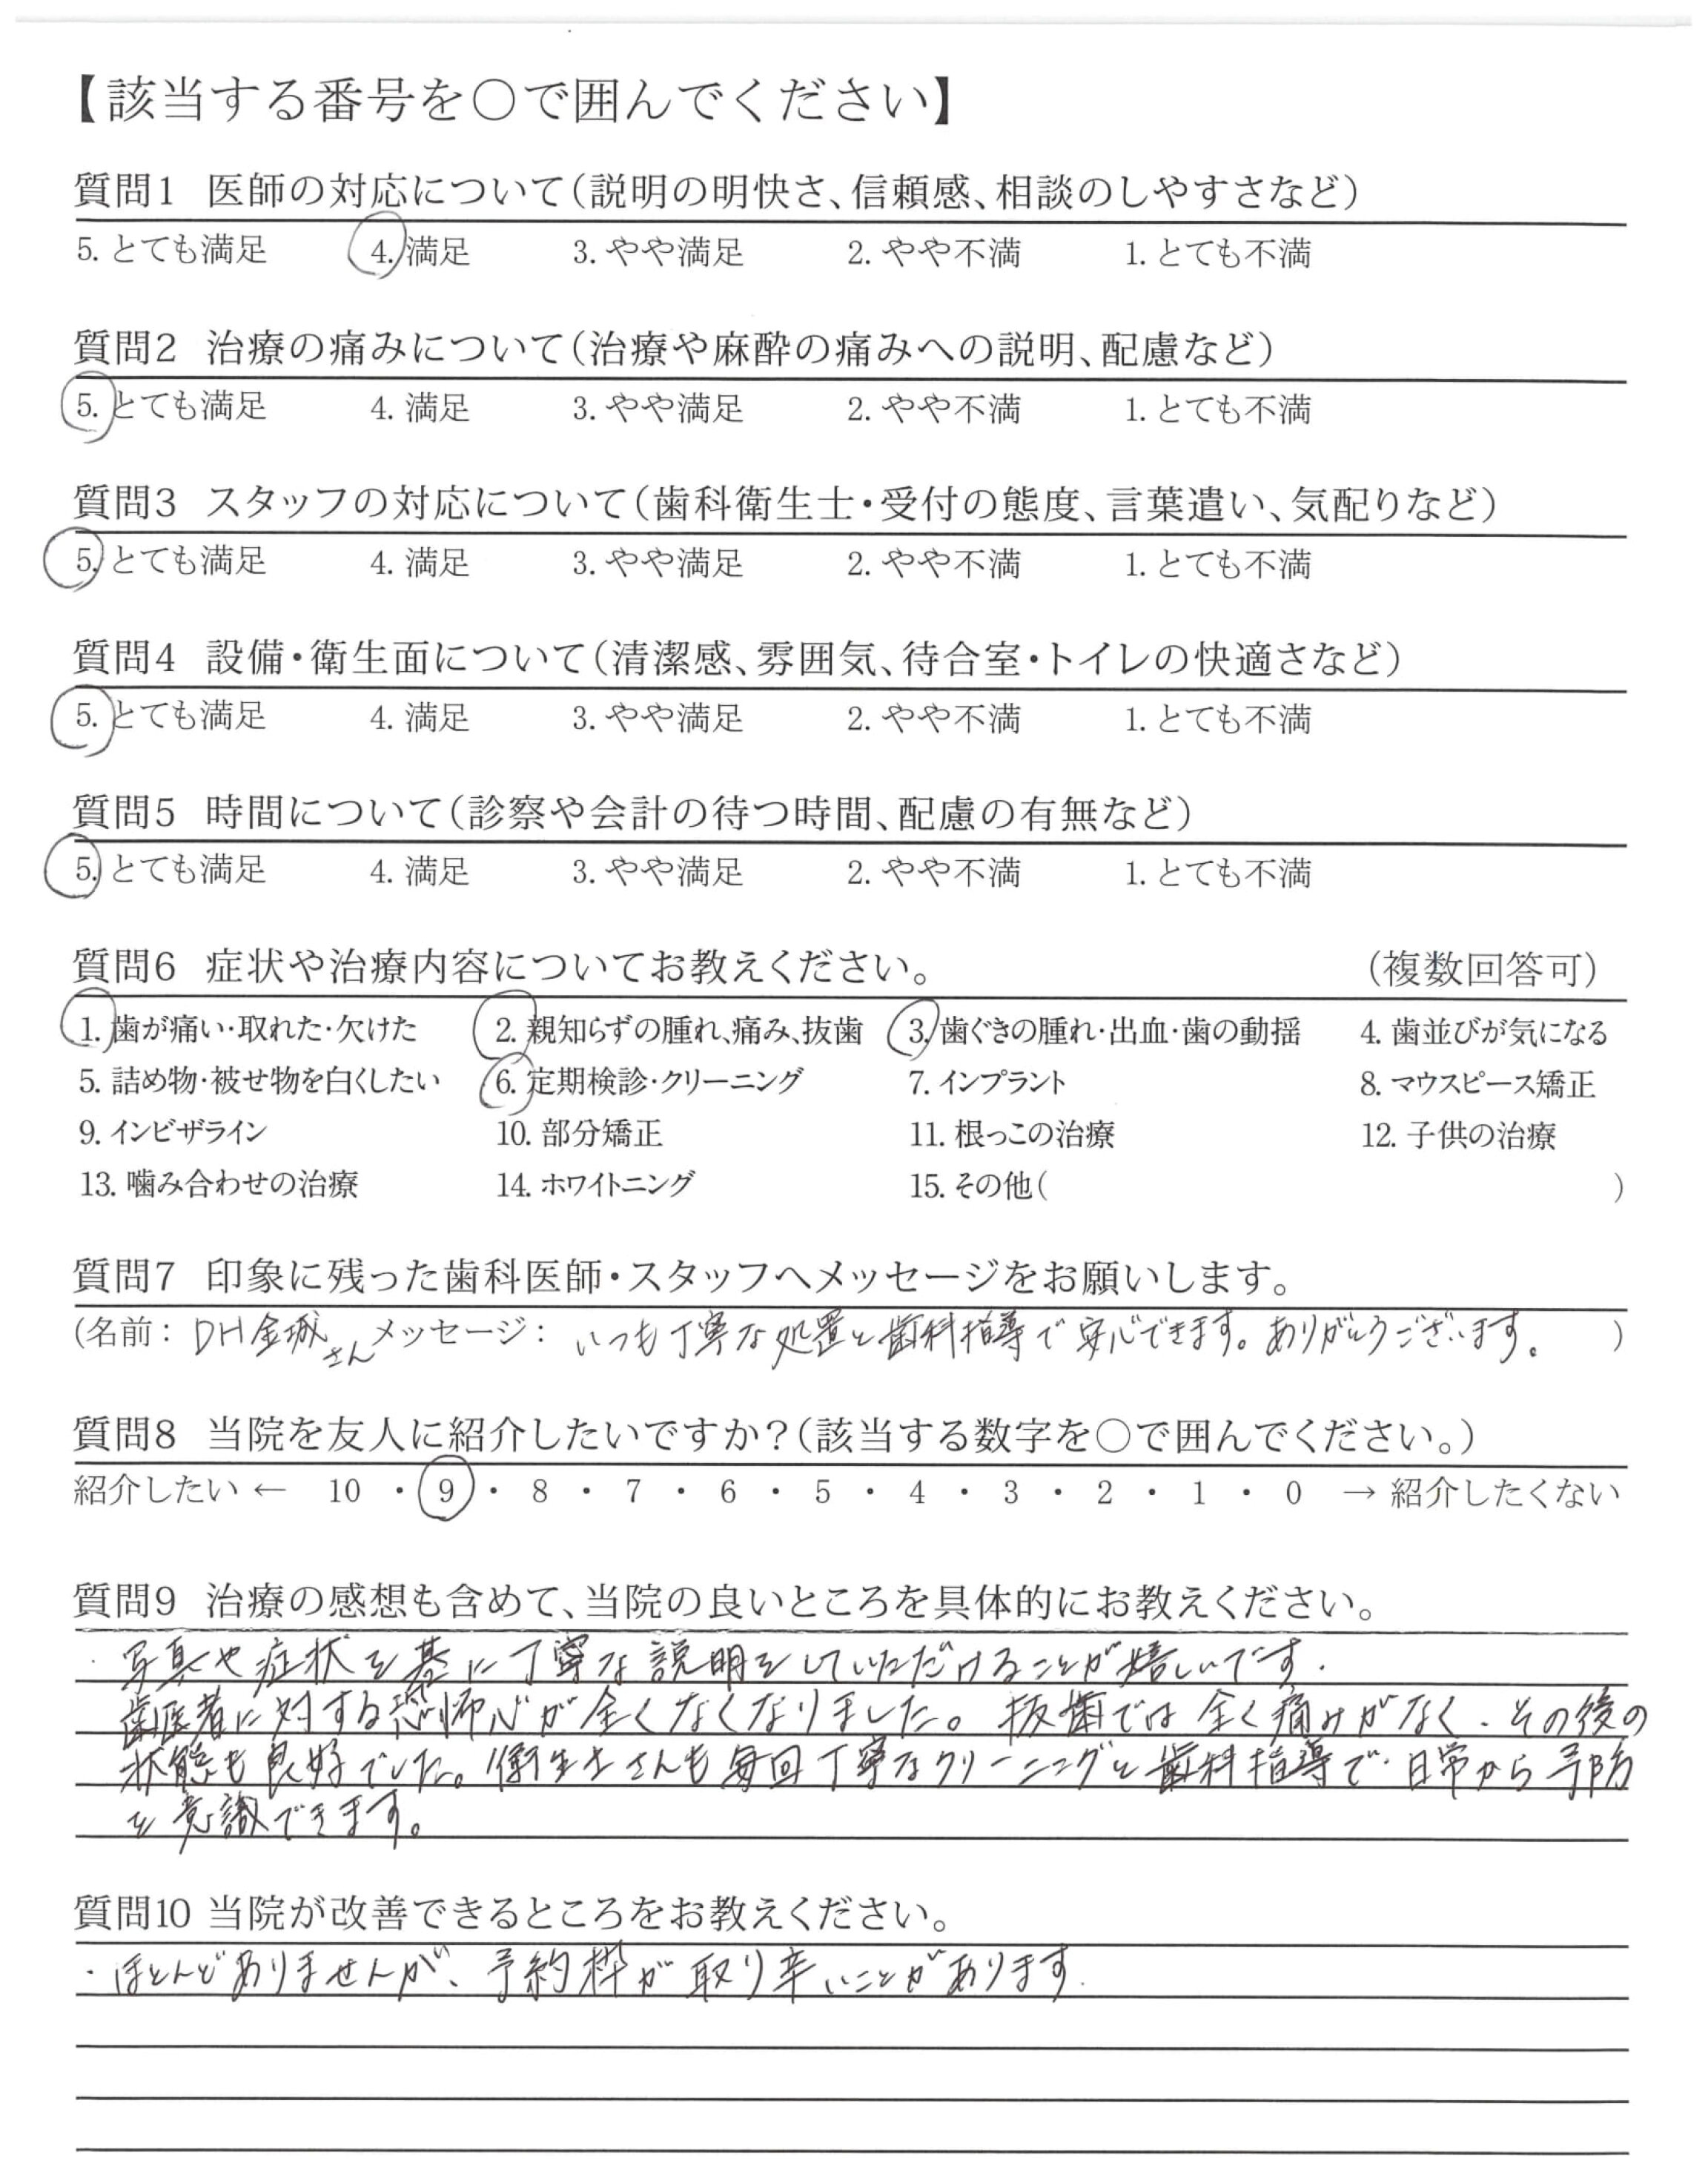 【該当する番号を〇で囲んでください】
質問1 医師の対応について(説明の明快さ、信頼感、相談のしやすさなど)
5. とても満足 4. 満足 3. やや満足 2. やや不満 1. とても不満
質問2 治療の痛みについて(治療や麻酔の痛みへの説明、配慮など)
5. とても満足 4. 満足 3. やや満足 2. やや不満 1. とても不満
質問3 スタッフの対応について(歯科衛生士・受付の態度、言葉遣い、気配りなど)
5. とても満足 4. 満足 3. やや満足 2. やや不満 1. とても不満
質問4 設備・衛生面について(清潔感、雰囲気、待合室・トイレの快適さなど)
5. とても満足 4. 満足 3. やや満足 2. やや不満 1. とても不満
質問5 時間について(診察や会計の待つ時間、配慮の有無など)
5. とても満足 4. 満足 3. やや満足 2. やや不満 1. とても不満
質問6 症状や治療内容についてお教えください。 (複数回答可)
1. 歯が痛い・取れた・欠けた 2. 親知らずの腫れ、痛み、抜歯 3. 歯ぐきの腫れ・出血・歯の動揺 4. 歯並びが気になる
5. 詰め物・被せ物を白くしたい 6. 定期検診・クリーニング 7. インプラント 8. マウスピース矯正
9. インビザライン 10. 部分矯正 11. 根っこの治療 12. 子供の治療
13. 噛み合わせの治療 14. ホワイトニング 15. その他( )
質問7 印象に残った歯科医師・スタッフへメッセージをお願いします。
(名前: DH金城さん メッセージ: いつも丁寧な処置と歯科指導で安心できます。ありがとうございます。 )
質問8 当院を友人に紹介したいですか?(該当する数字を〇で囲んでください。)
紹介したい ← 10 ・ 9 ・ 8 ・ 7 ・ 6 ・ 5 ・ 4 ・ 3 ・ 2 ・ 1 ・ 0 → 紹介したくない
質問9 治療の感想も含めて、当院の良いところを具体的にお教えください。
・写真や症状を基に丁寧な説明をしていただけることが嬉しいです.
歯医者に対する恐怖心が全くなくなりました。抜歯では全く痛みがなく、その後の
状態も良好でした。衛生士さんも毎回丁寧なクリーニングと歯科指導で、日常から予防
を意識できます。
質問10 当院が改善できるところをお教えください。
・ほとんどありませんが、予約枠が取り辛いことがあります.